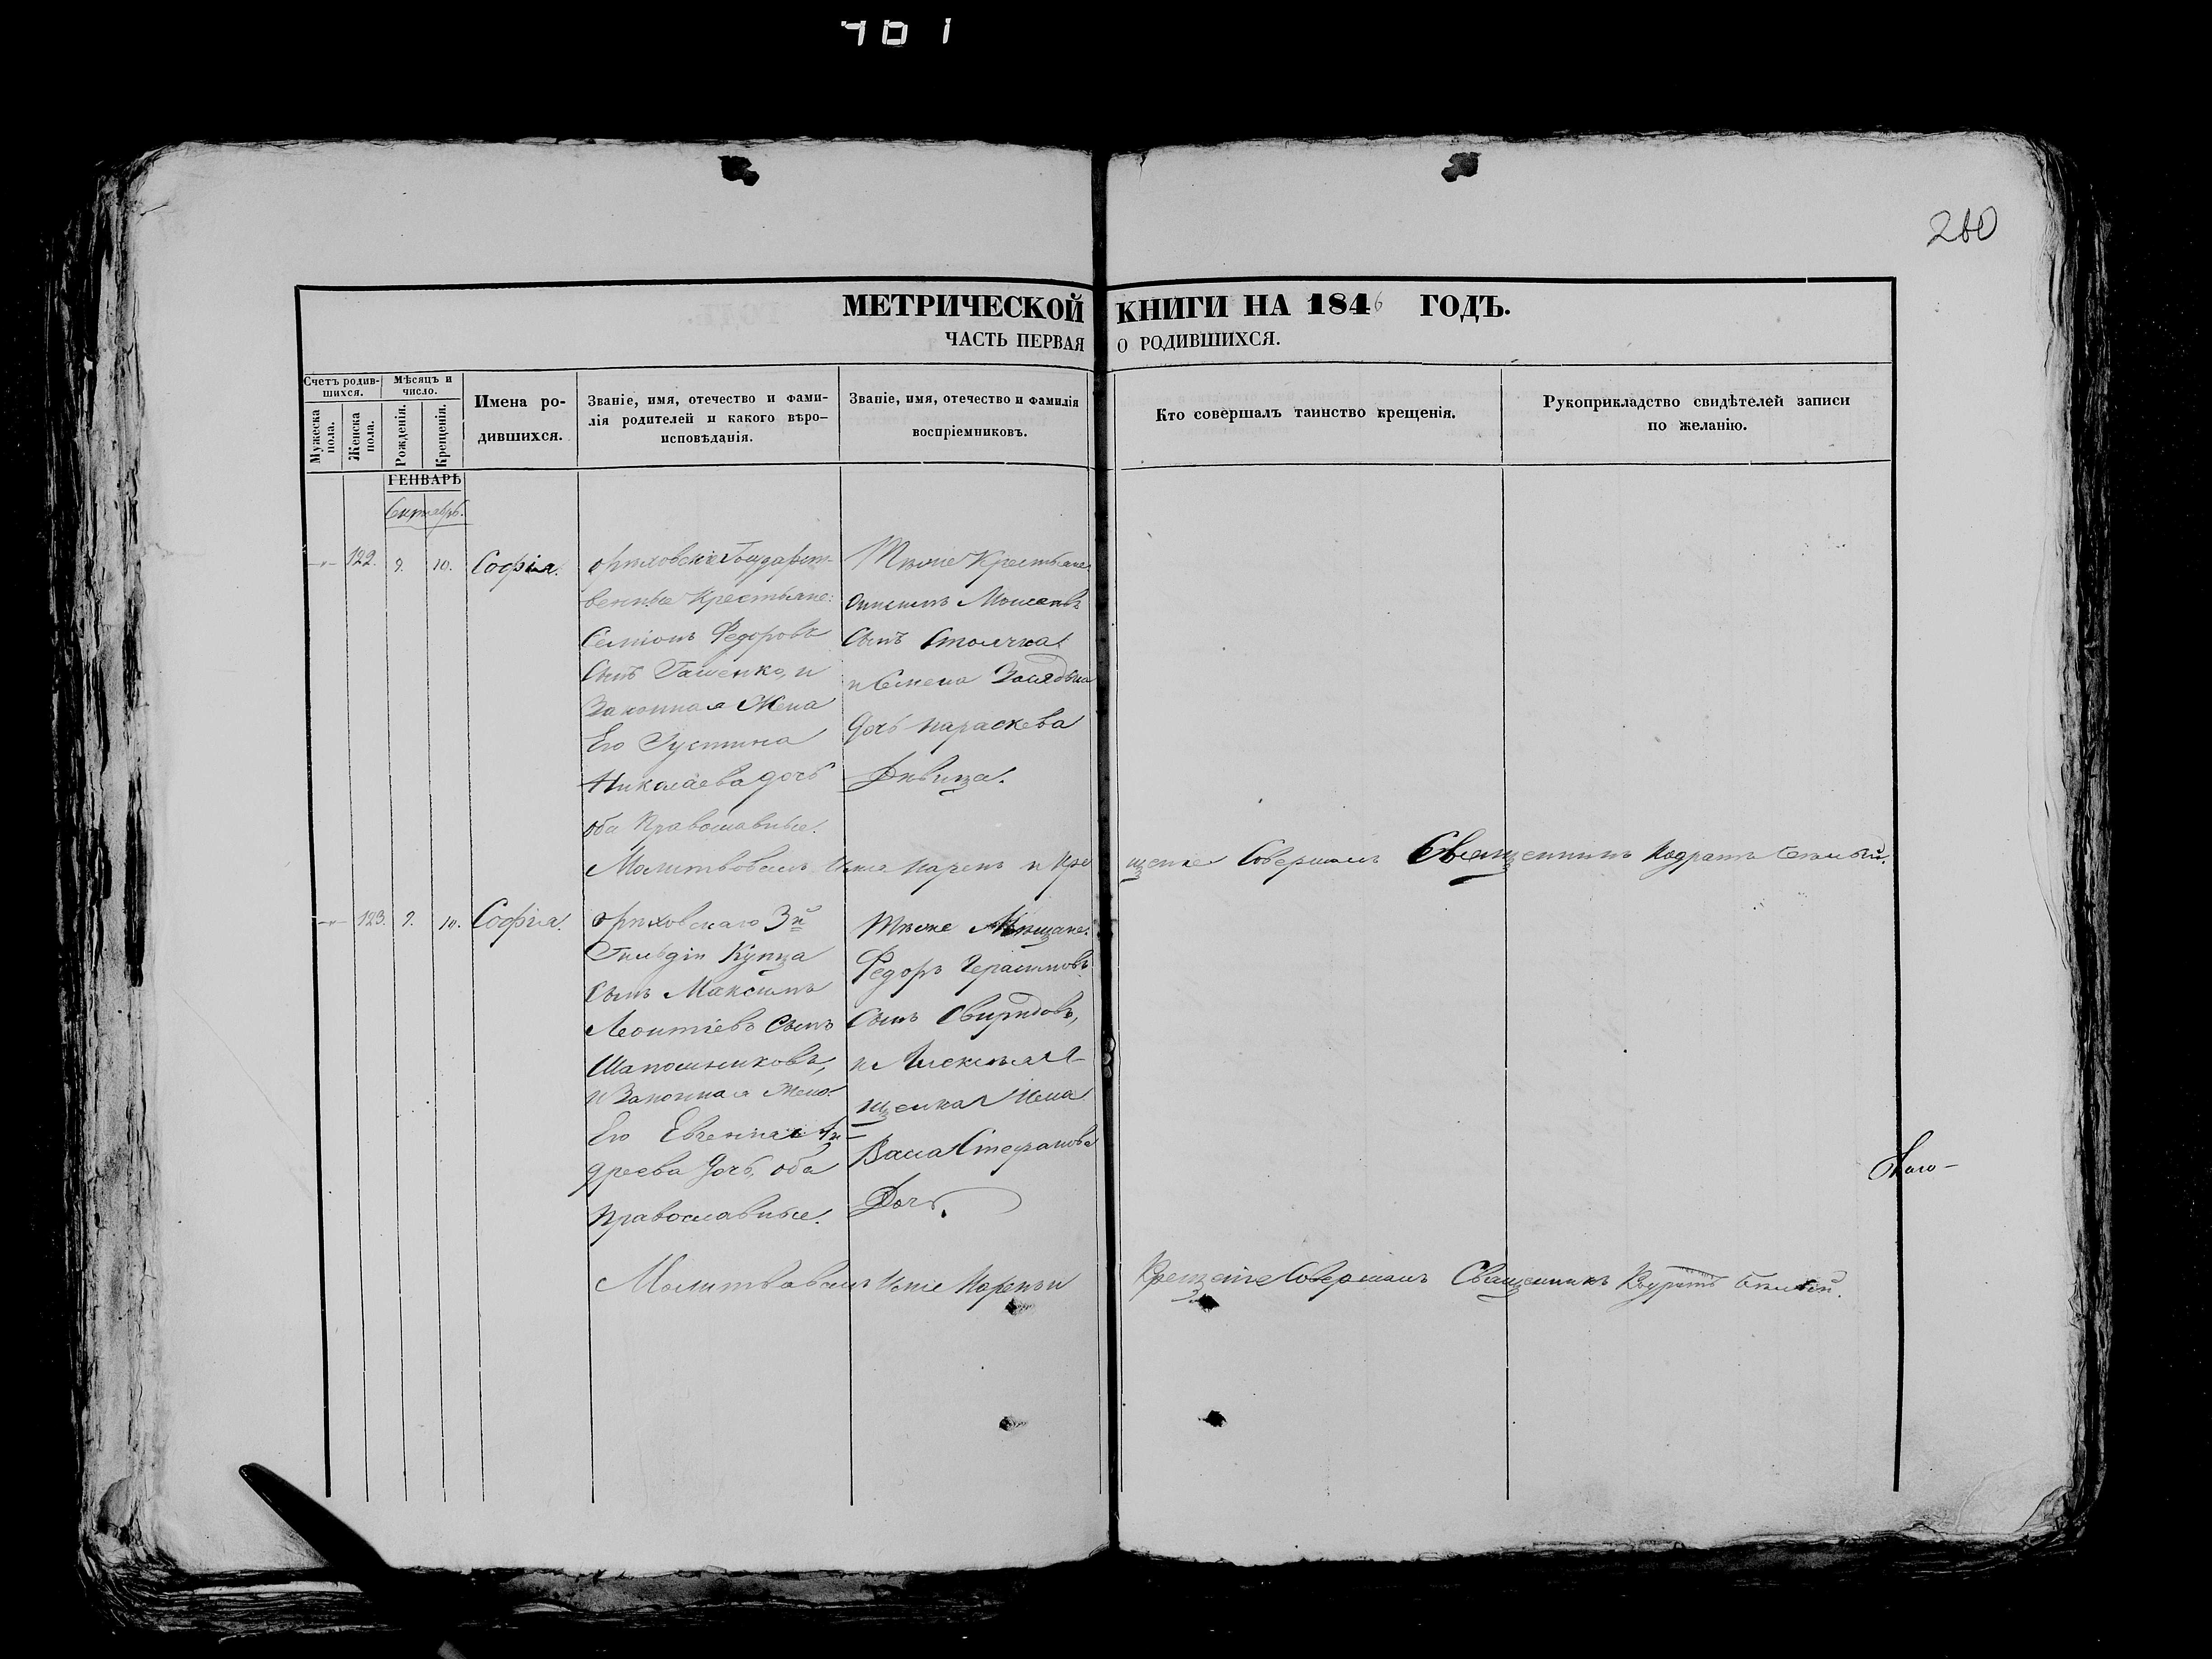 260
МЕТРИЧЕСКОЙ КНИГИ НА 1846 ГОДЪ.
ЧАСТЬ ПЕРВАЯ О РОДИВШИХСЯ.
Счетъ родившихся.
Мужеска пола.
Женска пола.
Мѣсяцъ и число.
Рожденія.
Крещенія.
Имена родившихся.
Званіе, имя, отечество и фамилія родителей и какого вѣроисповѣданія.
Званіе, имя, отечество и фамилія воспріемниковъ.
Кто совершалъ таинство крещенія.
Рукоприкладство свидѣтелей записи по желанію.
ГЕНВАРЬ
Сентябрь.
122. 9. 10. Софія.
Орѣховскіе Государст-
венные Крестьяне:
Семіонъ Федоровъ
Сынъ Гашенко, и
Законная Жена
Его Густина
Николаева дочь
оба Православные.
Тѣже Крестьяне
Сынъ
дочь параскева
Дѣвица.
Молитвовалъ Имя нарекъ и Кре
щеніе Совершалъ Священникъ Кодратъ Бѣлый.
123. 9. 10. Софія.
Орѣховскаго 3й
Гильдіи Купца
Сынъ Максимъ
Леонтіевъ Сынъ
Шапошниковъ,
и Законная Жена
Его Евгенія Ан-
дреева дочь, оба
Православные.
Тѣже Мѣщане:
Федоръ Герасимовъ
Сынъ Свиридовъ,
Жена
Стефанова
Дочь.
Молитвовалъ Имя Нарекъ и
Крещеніе Совершалъ Священникъ Кодратъ Бѣлый.